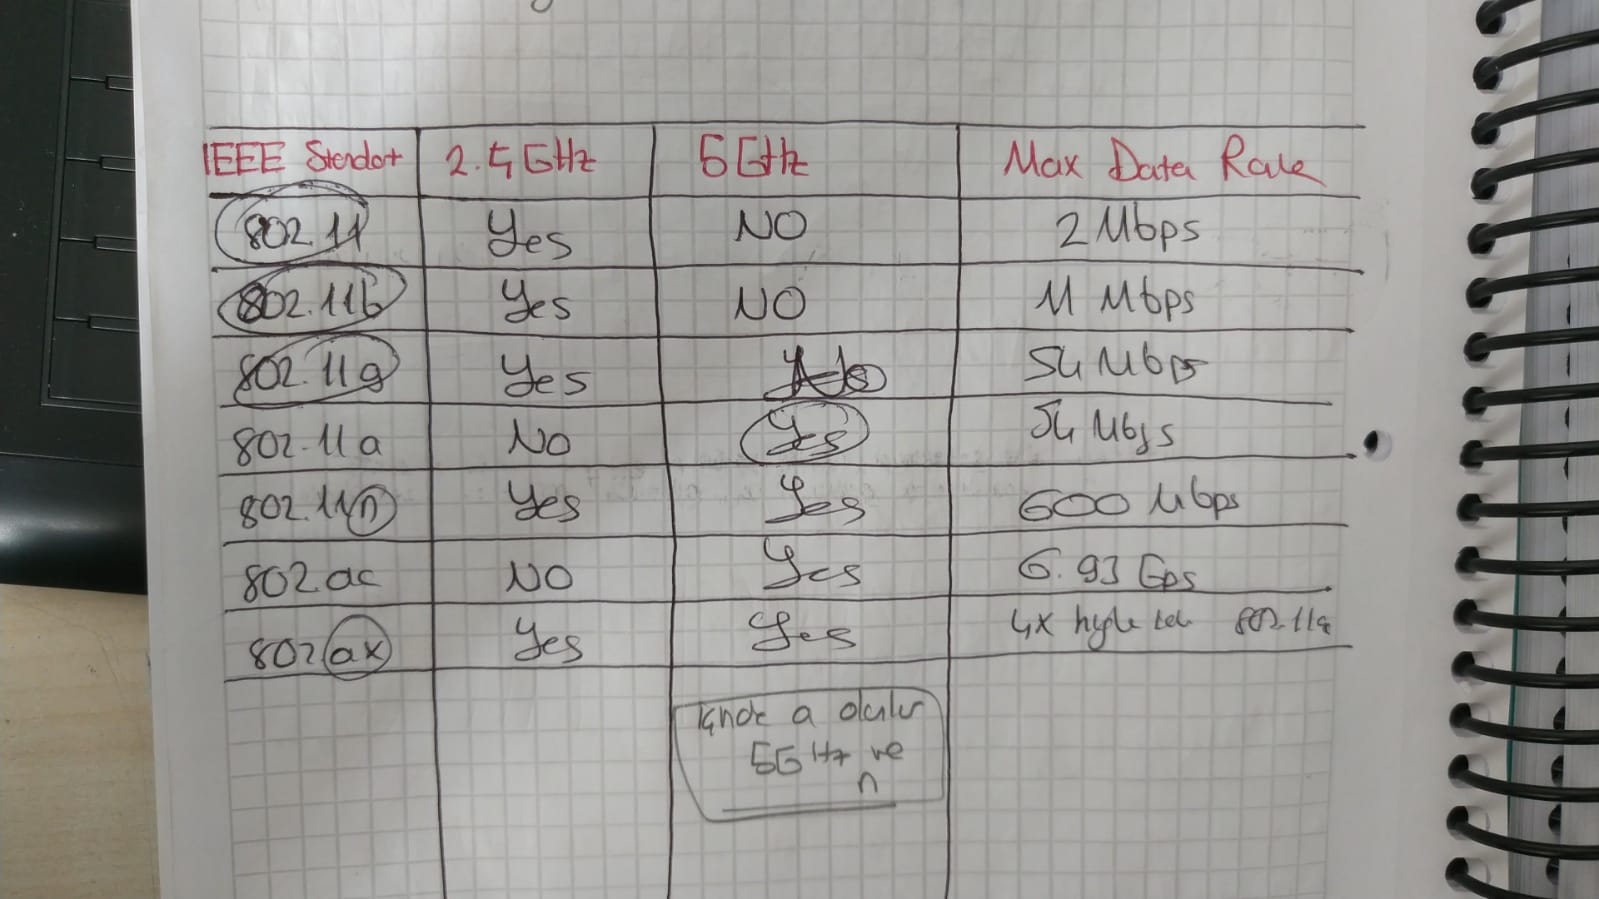 IEEE Standart 2.4 GHz 5 GHz Max Data Rate
802.11 Yes NO 2 Mbps
802.11b Yes NO 11 Mbps
802.11g Yes 54 Mbps
802.11a NO Yes 54 Mbps
802.11n Yes Yes 600 Mbps
802.ac NO Yes 6.93 Gps
802.ax Yes Yes 4x 802.11a
içinde a olanlar
5GHz ve
n